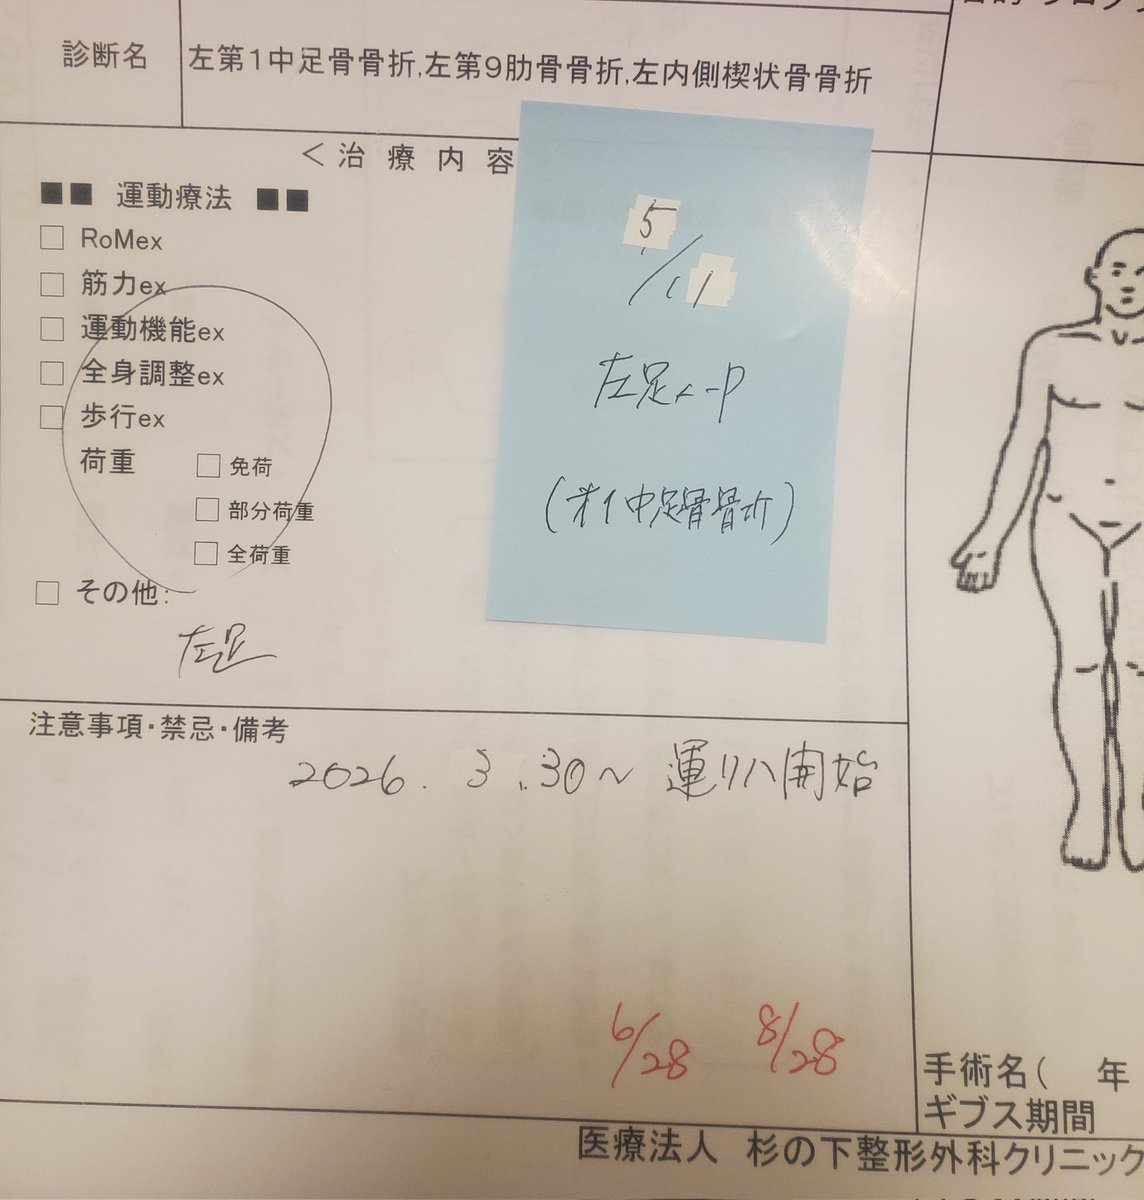 診断名
左第1中足骨骨折,左第9肋骨骨折,左内側楔状骨骨折
<治療内容
■■ 運動療法 ■■
□ RoMex
□ 筋力ex
□ 運動機能ex
□ 全身調整ex
□ 歩行ex
荷重 □ 免荷
□ 部分荷重
□ 全荷重
□ その他:
左足
5/11
左足
(第1中足骨骨折)
注意事項・禁忌・備考
2026. 3.30~ 運リハ開始
6/28 8/28
手術名( 年
ギプス期間
医療法人 杉の下整形外科クリニック